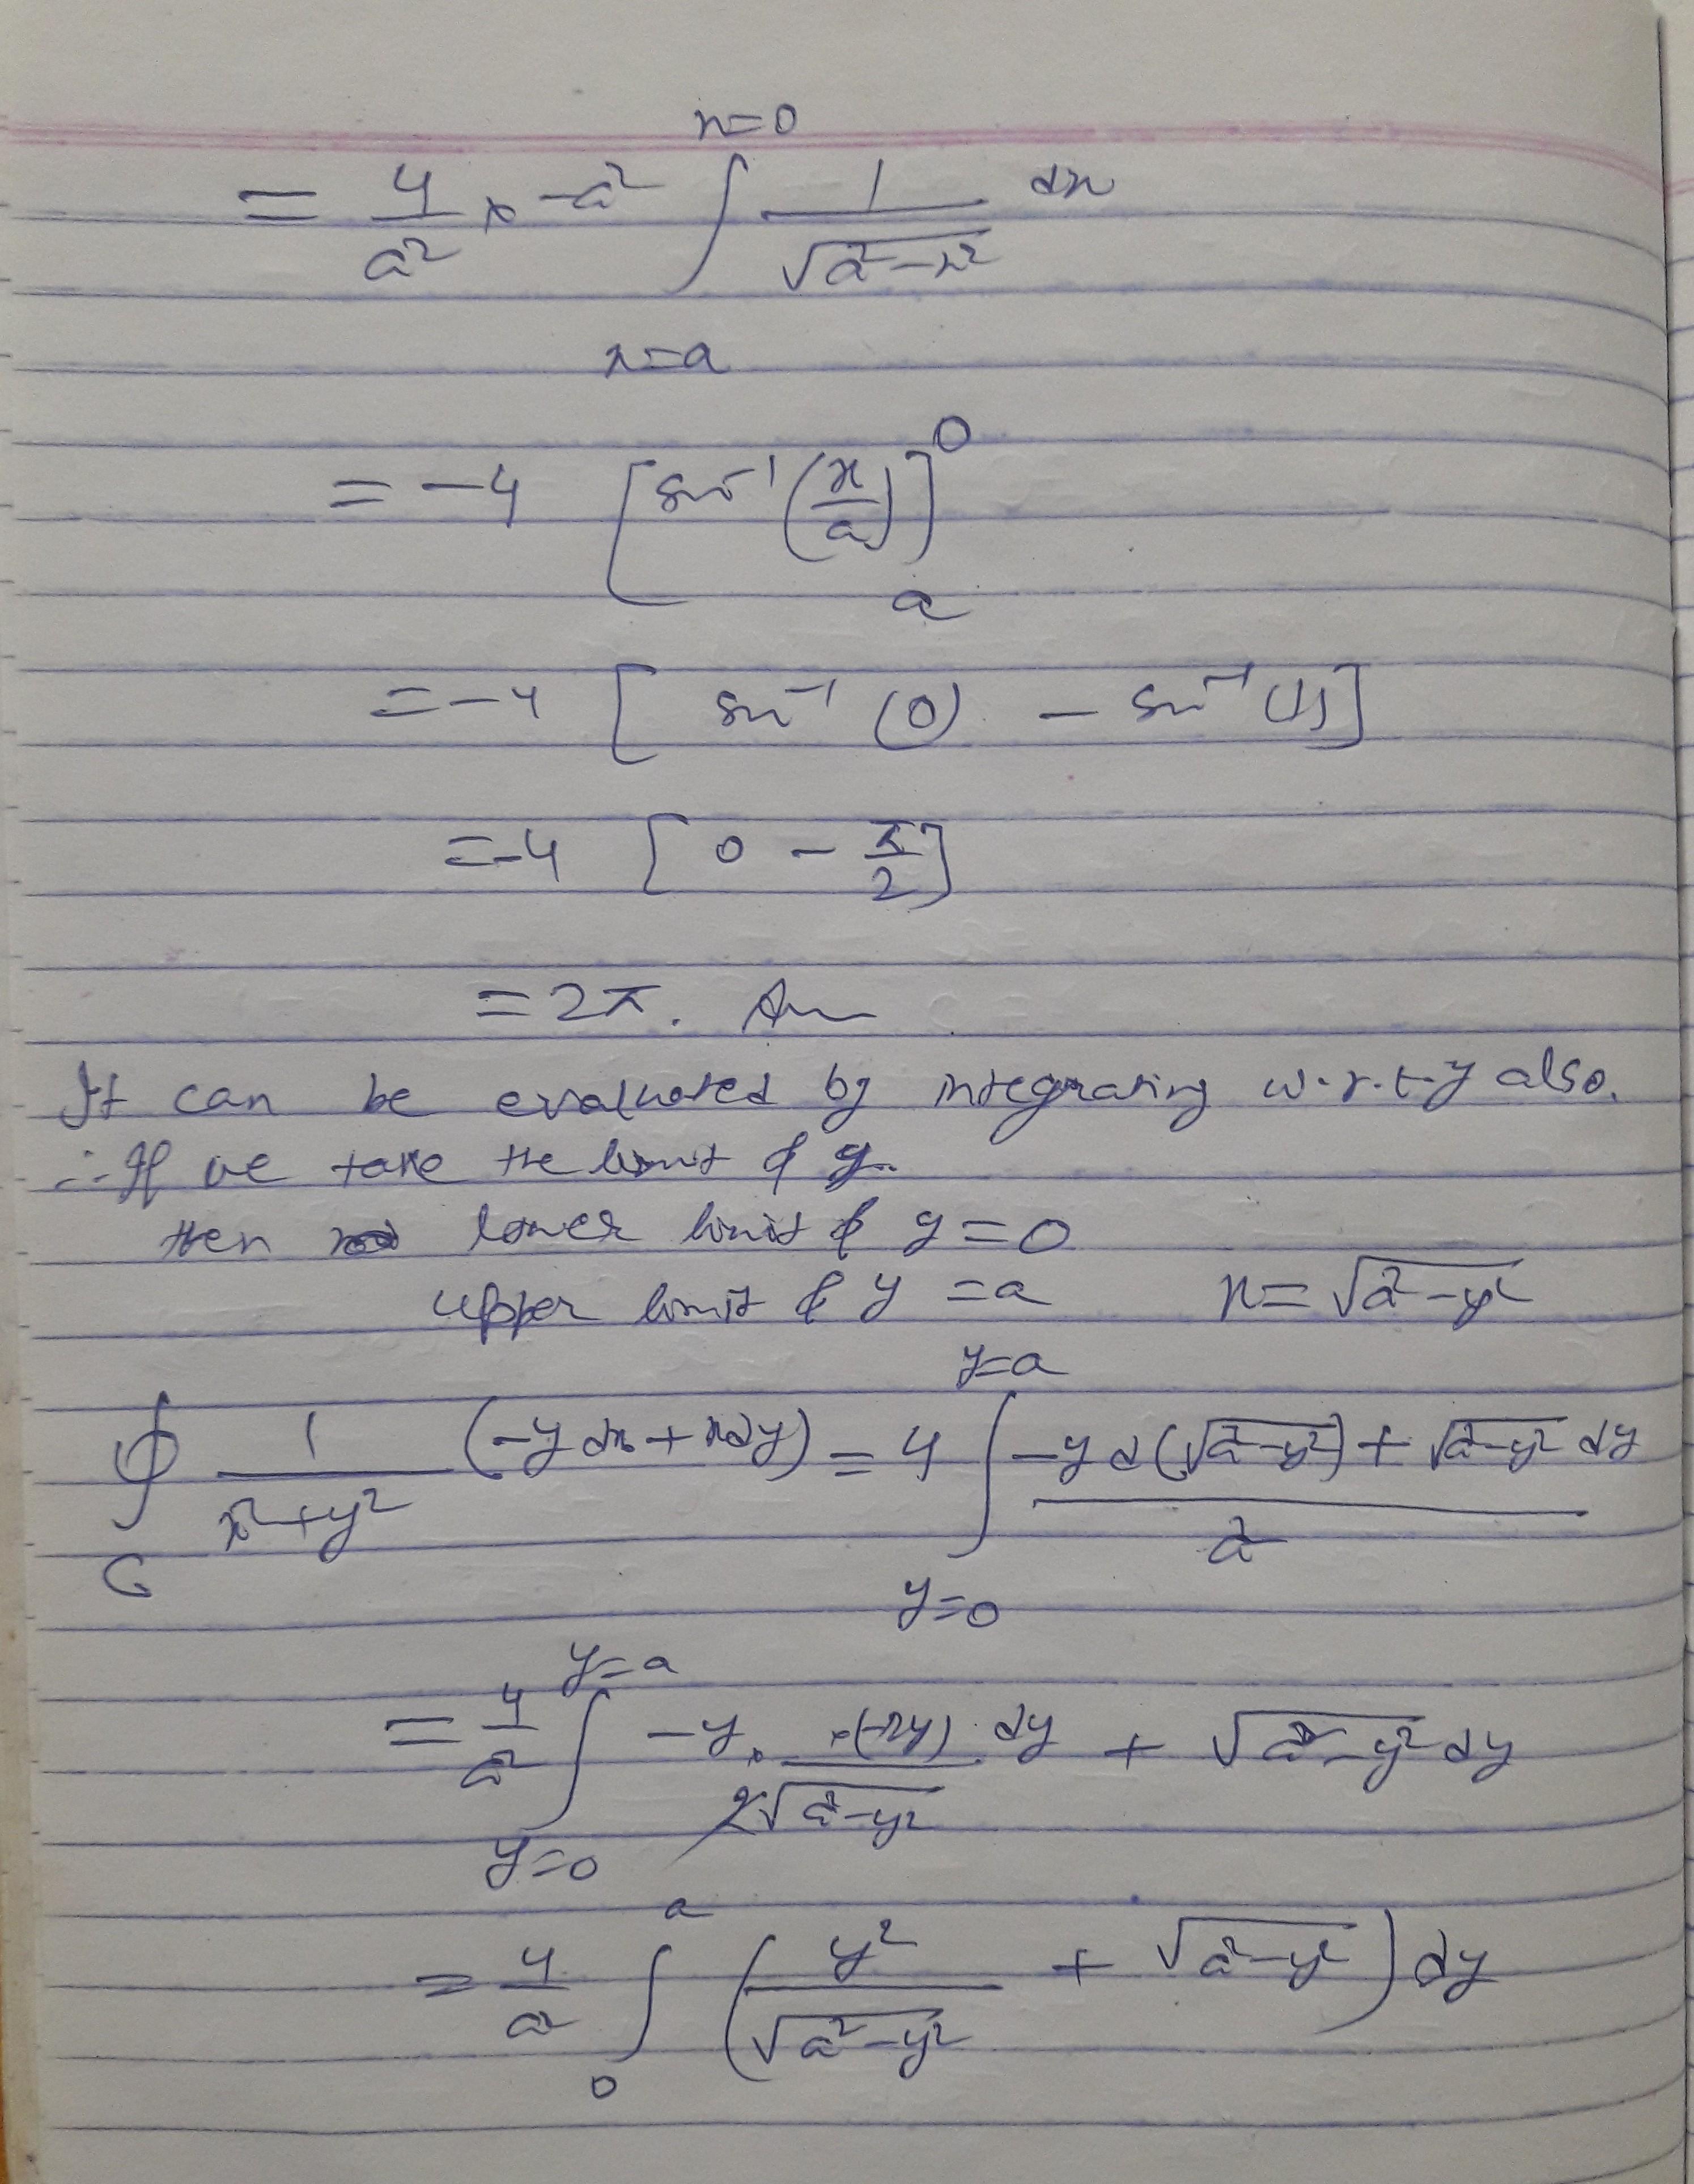 = 4/a² × -a² ∫_{x=a}^{x=0} 1/√(a²-x²) dx
= -4 [sin⁻¹(x/a)]_a^0
= -4 [sin⁻¹(0) - sin⁻¹(1)]
= -4 [0 - π/2]
= 2π. Ans
It can be evaluated by integrating w.r.t y also.
∴ If we take the limit of y.
then lower limit of y = 0
upper limit of y = a x = √(a²-y²)
∮_C 1/(x²+y²) (-y dx + x dy) = 4 ∫_{y=0}^{y=a} (-y d(√(a²-y²)) + √(a²-y²) dy)/a²
= 4/a² ∫_{y=0}^{y=a} -y × (-2y)/(2√(a²-y²)) dy + √(a²-y²) dy
= 4/a² ∫_0^a (y²/√(a²-y²) + √(a²-y²)) dy